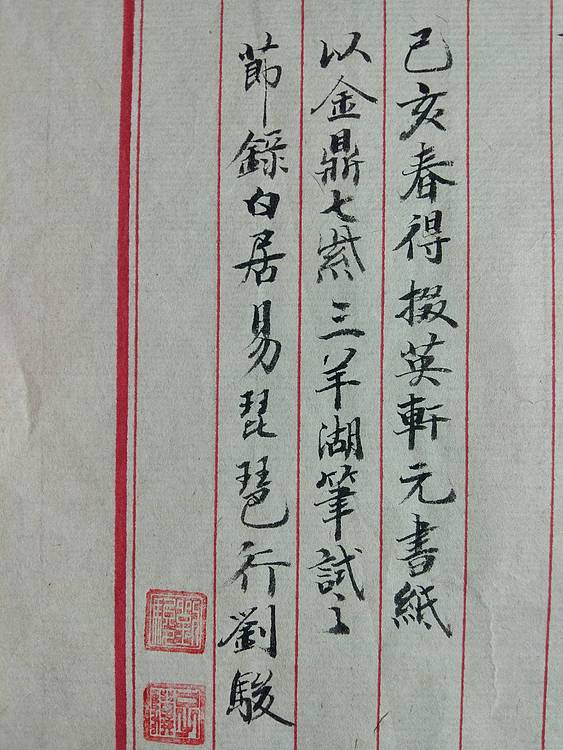 己亥春得掇英軒元書紙
以金鼎七紫三羊湖筆試之
節錄白居易琵琶行劉駿